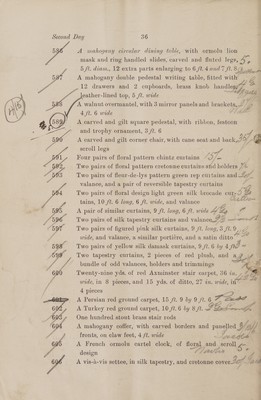 Second Day 36
586 A mahogany circular dining table, with ormolu lion
mask and ring handled slides, carved and fluted legs,
5 ft. diam., 12 extra parts enlarging to 6 ft. 4 and 7 ft. 9
587 A mahogany double pedestal writing table, fitted with
12 drawers and 2 cupboards, brass knob handles,
leather-lined top, 5 ft. wide
588 A walnut overmantel, with 3 mirror panels and brackets,
4 ft. 6 wide
589 A carved and gilt square pedestal, with ribbon, festoon
and trophy ornament, 3 ft. 6
590 A carved and gilt corner chair, with cane seat and back,
scroll legs
591 Four pairs of floral pattern chintz curtains
592 Two pairs of floral pattern cretonne curtains and holders
593 Two pairs of fleur-de-lys pattern green rep curtains and
valance, and a pair of reversible tapestry curtains
594 Two pairs of floral design light green silk brocade cur-
tains, 10 ft. 6 long, 6 ft. wide, and valance
595 A pair of similar curtains, 9 ft. long, 6 ft. wide
596 Two pairs of silk tapestry curtains and valance
597 Two pairs of figured pink silk curtains, 9 ft. long, 3 ft. 9
wide, and valance, a similar portière, and a satin ditto
598 Two pairs of yellow silk damask curtains, 9 ft. 6 by 4 ft.
599 Two tapestry curtains, 2 pieces of red plush, and a
bundle of odd valances, borders and trimmings
600 Twenty-nine yds. of red Axminster stair carpet, 36 in.
wide, in 6 pieces, and 15 yds. of ditto, 27 in. wide, in
4 pieces
601 A Persian red ground carpet, 15 ft. 9 by 9 ft. 6
602 A Turkey red ground carpet, 10 ft. 6 by 8 ft.
603 One hundred stout brass stair rods
604 A mahogany coffer, with carved borders and panelled
fronts, on claw feet, 4 ft. wide
605 A French ormolu cartel clock, of floral and scroll
design
606 A vis-à-vis settee, in silk tapestry, and cretonne cover